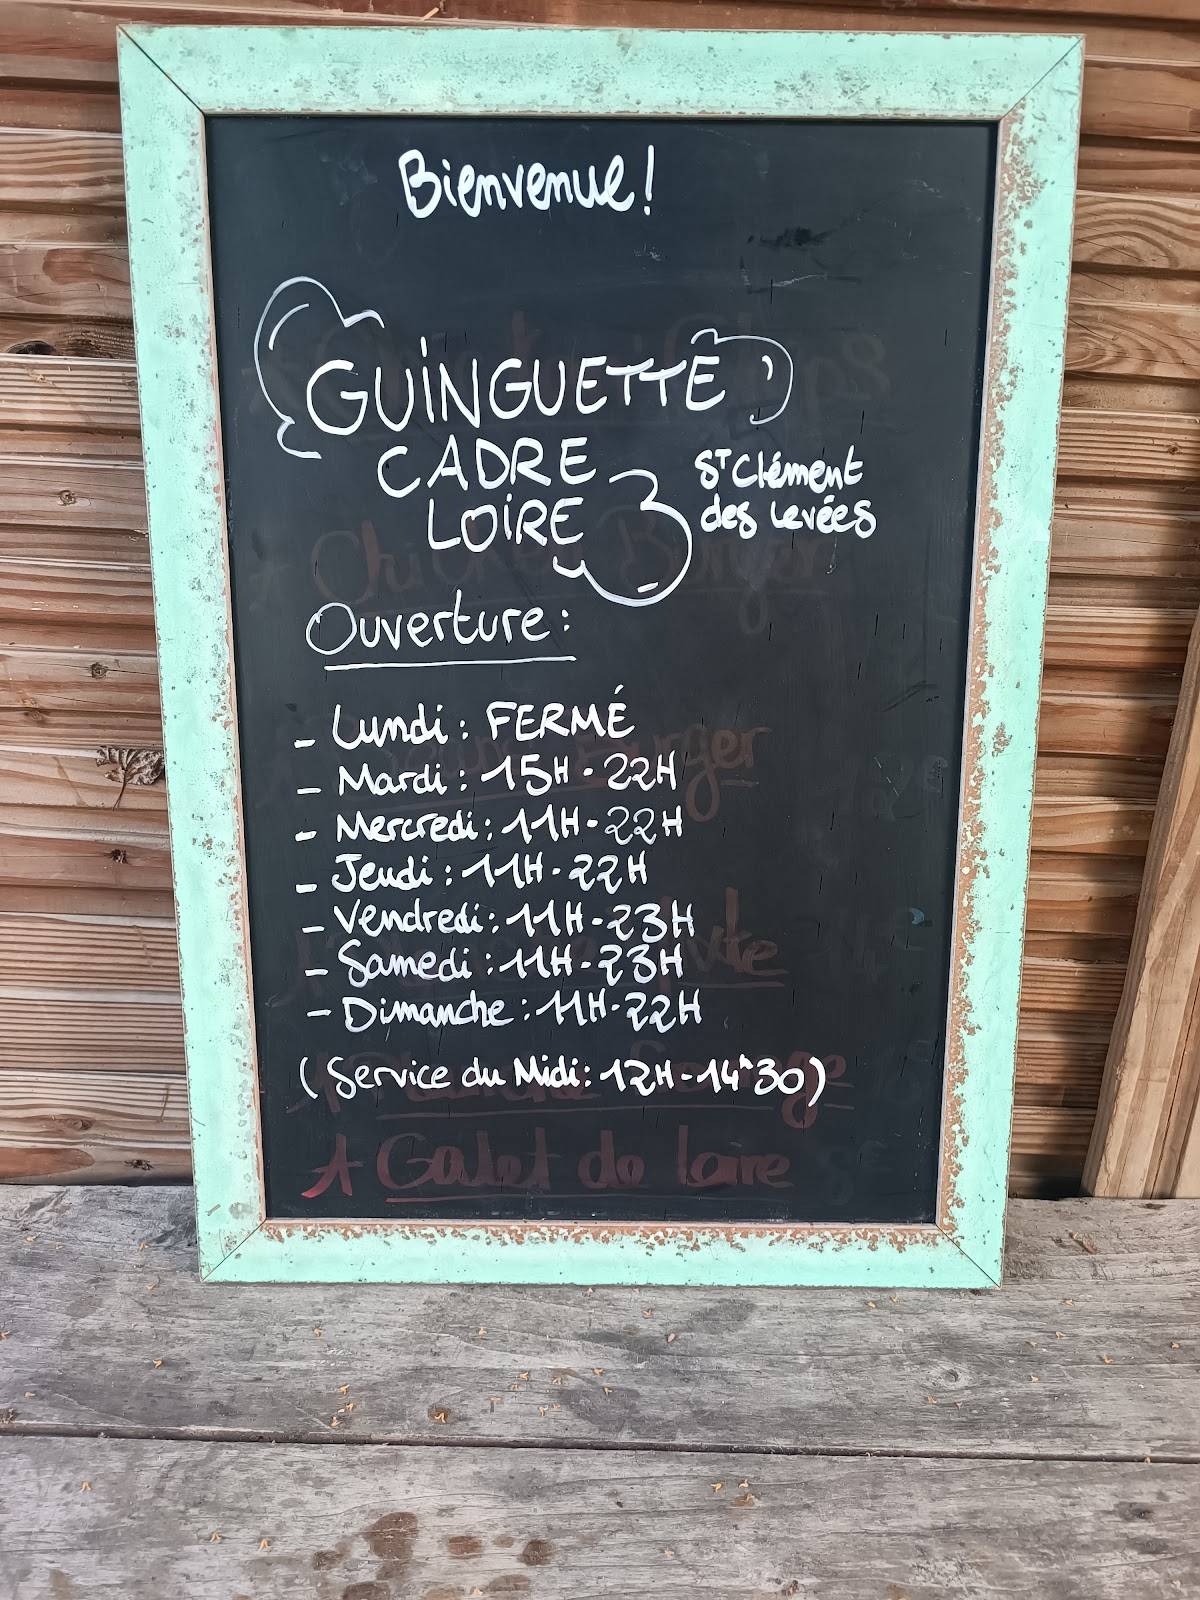 Bienvenue!
GUINGUETTE
CADRE
LOIRE
ST Clément
des Levées
Ouverture:
- Lundi: FERMÉ
- Mardi: 15H-22H
- Mercredi: 11H-22H
- Jeudi: 11H-22H
- Vendredi: 11H-23H
- Samedi: 11H-23H
- Dimanche: 11H-22H
(Service du Midi: 12H-14h30)
Galet de Loire